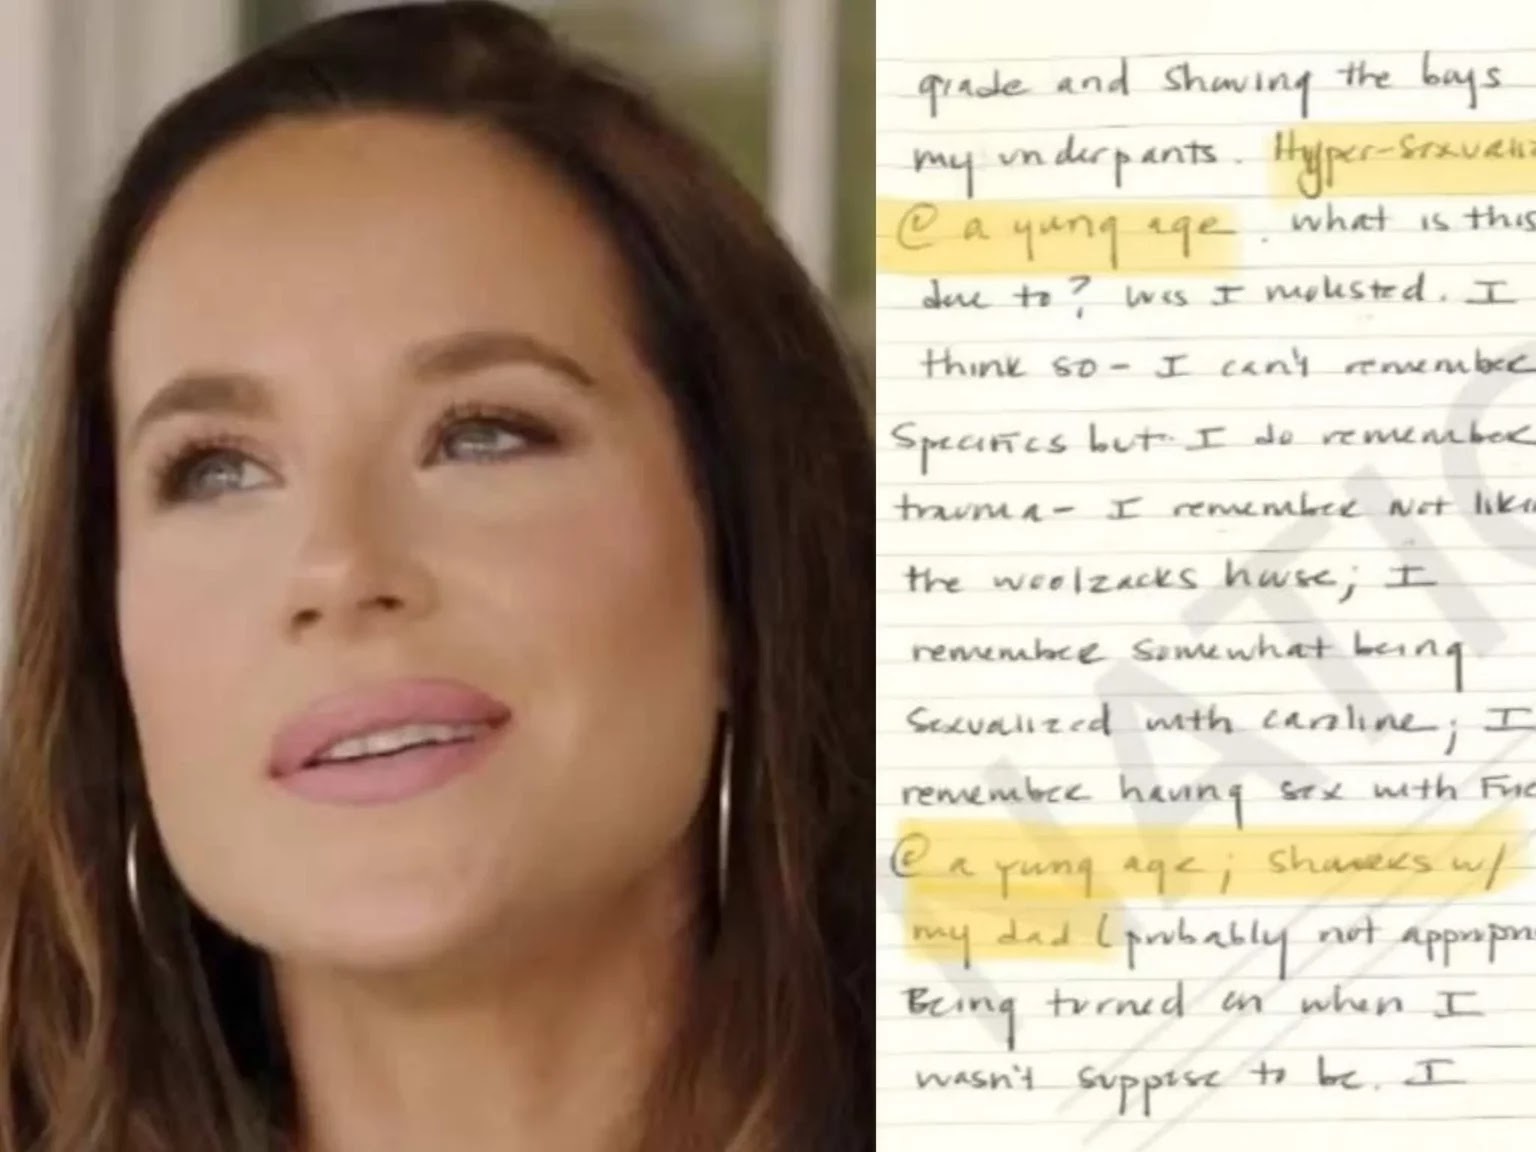 grade and showing the boys
my underpants. Hyper-Sexualiz
@ a yung age. what is this
due to? Was I molested. I
think so - I can't remember
specifics but I do remember
trauma - I remember not likin
the woolzacks house; I
remember somewhat being
sexualized with caroline; I
remember having sex with Frie
@ a yung age; showers w/
my dad (probably not appropri
Being turned on when I
wasn't suppose to be. I
NATIO